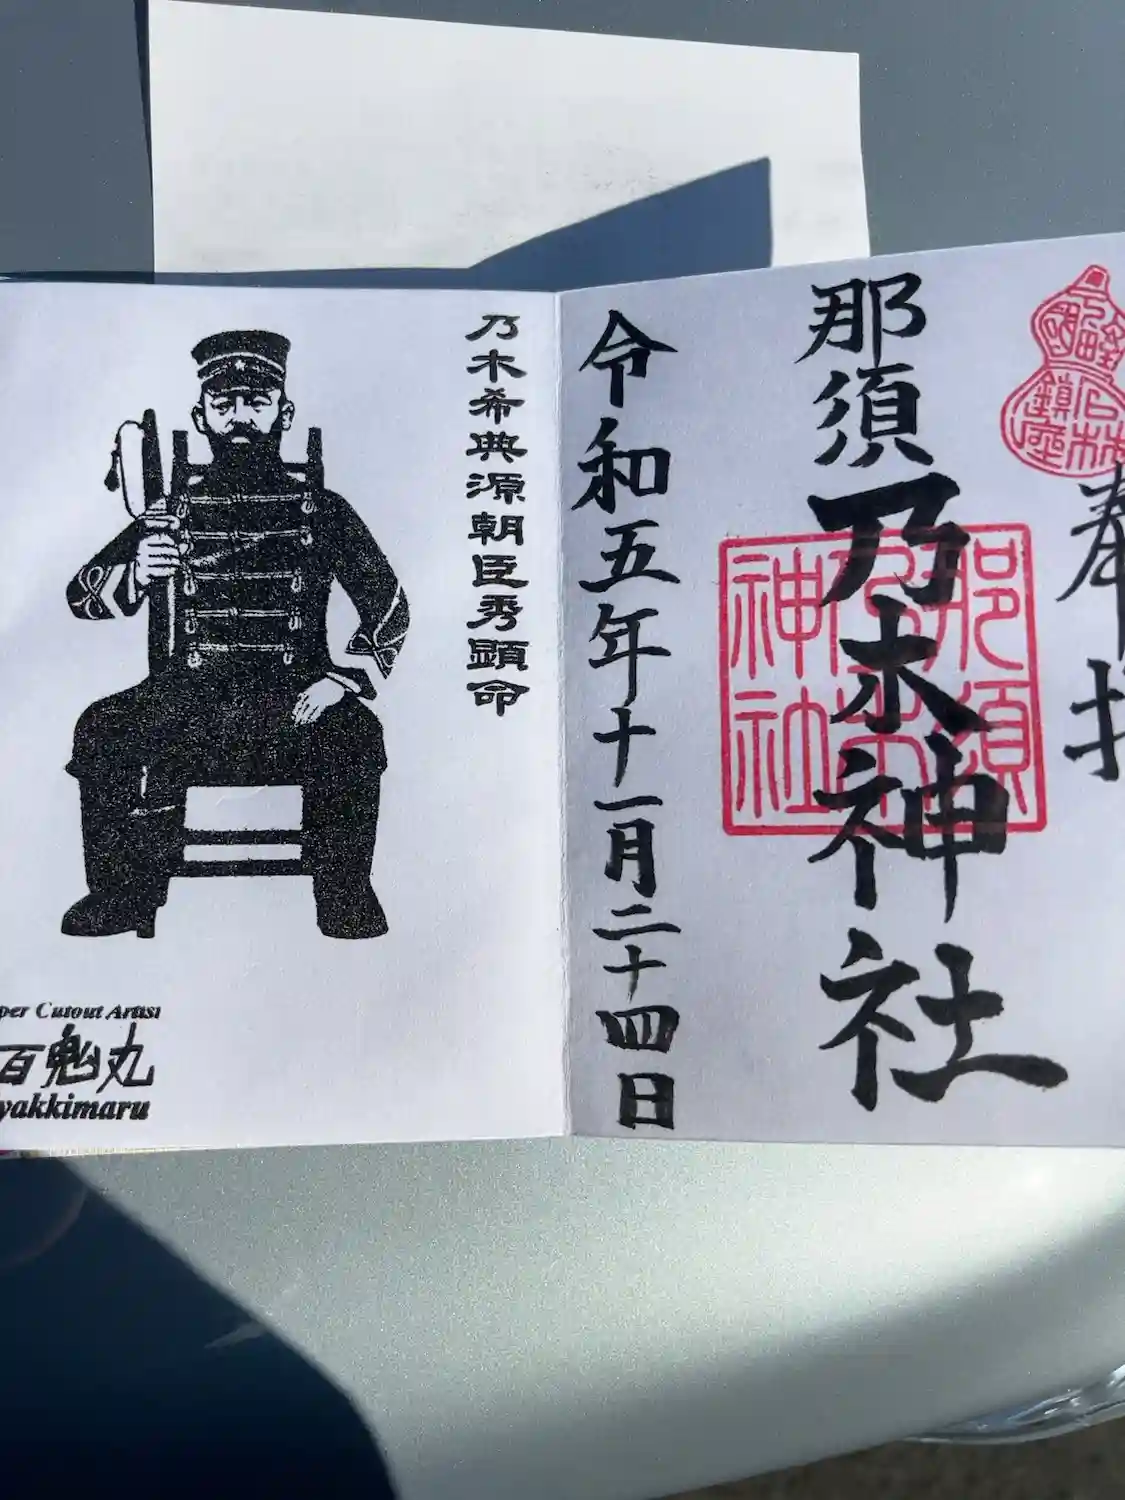 奉拝
那須乃木神社
那須乃木神社
令和五年十一月二十四日
乃木希典源朝臣秀顕命
per Cutout Artist
百鬼丸
yakkimaru
石林
鎮座